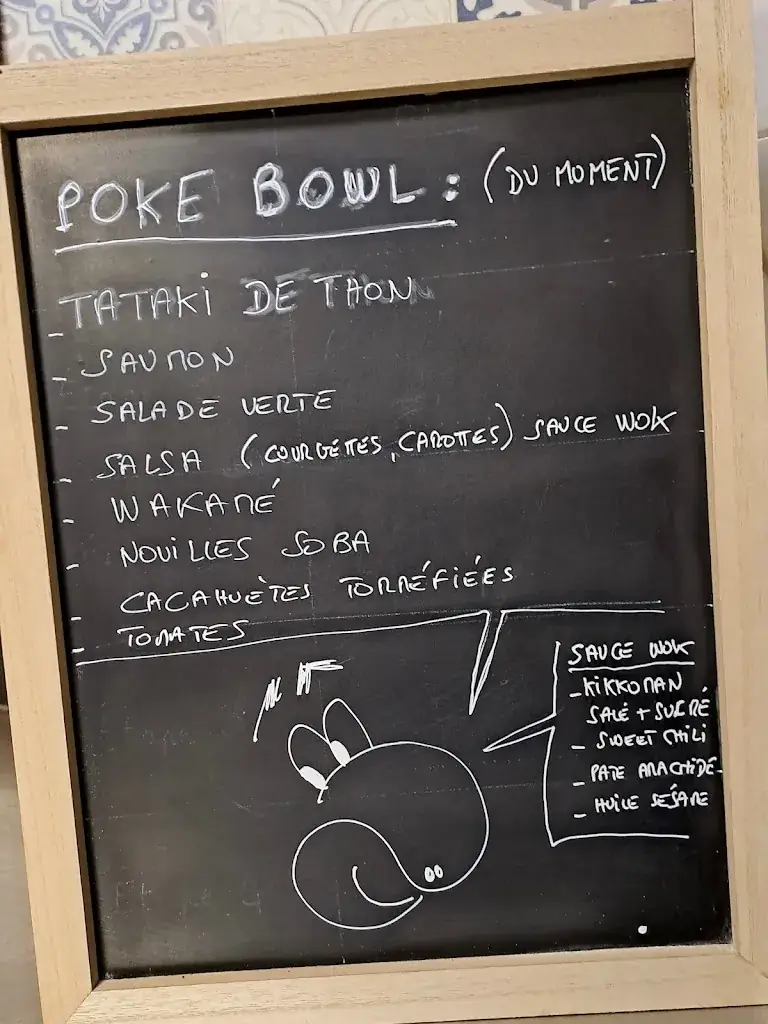 POKE BOWL : (DU MOMENT)
- TATAKI DE THON
- SAUMON
- SALADE VERTE
- SALSA (COURGETTES, CAROTTES) SAUCE WOK
- WAKAMÉ
- NOUILLES SOBA
- CACAHUÈTES TORRÉFIÉES
- TOMATES
SAUCE WOK
- KIKKOMAN
SALÉ + SUCRÉ
- SWEET CHILI
- PATE ARACHIDE
- HUILE SÉSAME